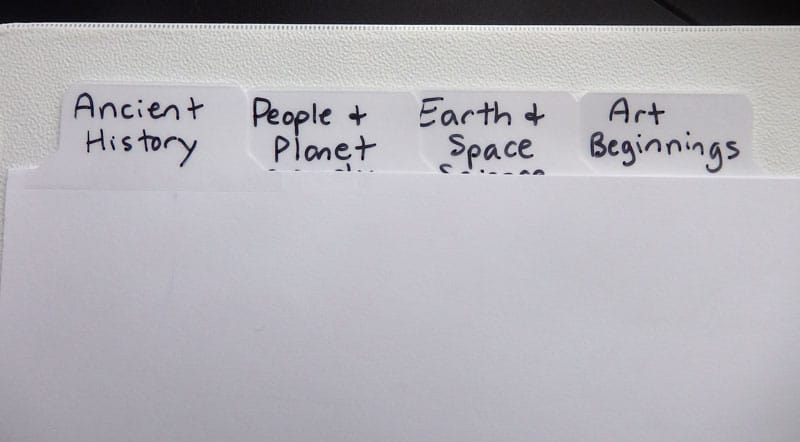 Ancient
History
People +
Planet
Earth +
Space
Art
Beginnings